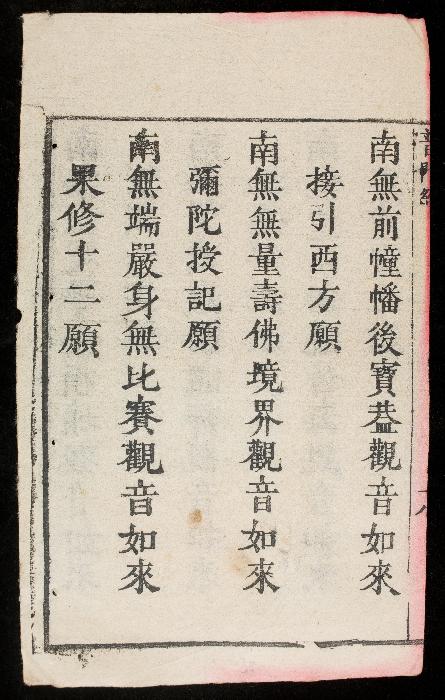 南無前幢幡後寶葢觀音如來
接引西方願
南無無量壽佛境界觀音如來
彌陀授記願
南無端嚴身無比賽觀音如來
果修十二願